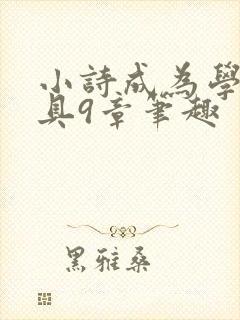 小詩成為學
具9章筆趣
黑雅桑